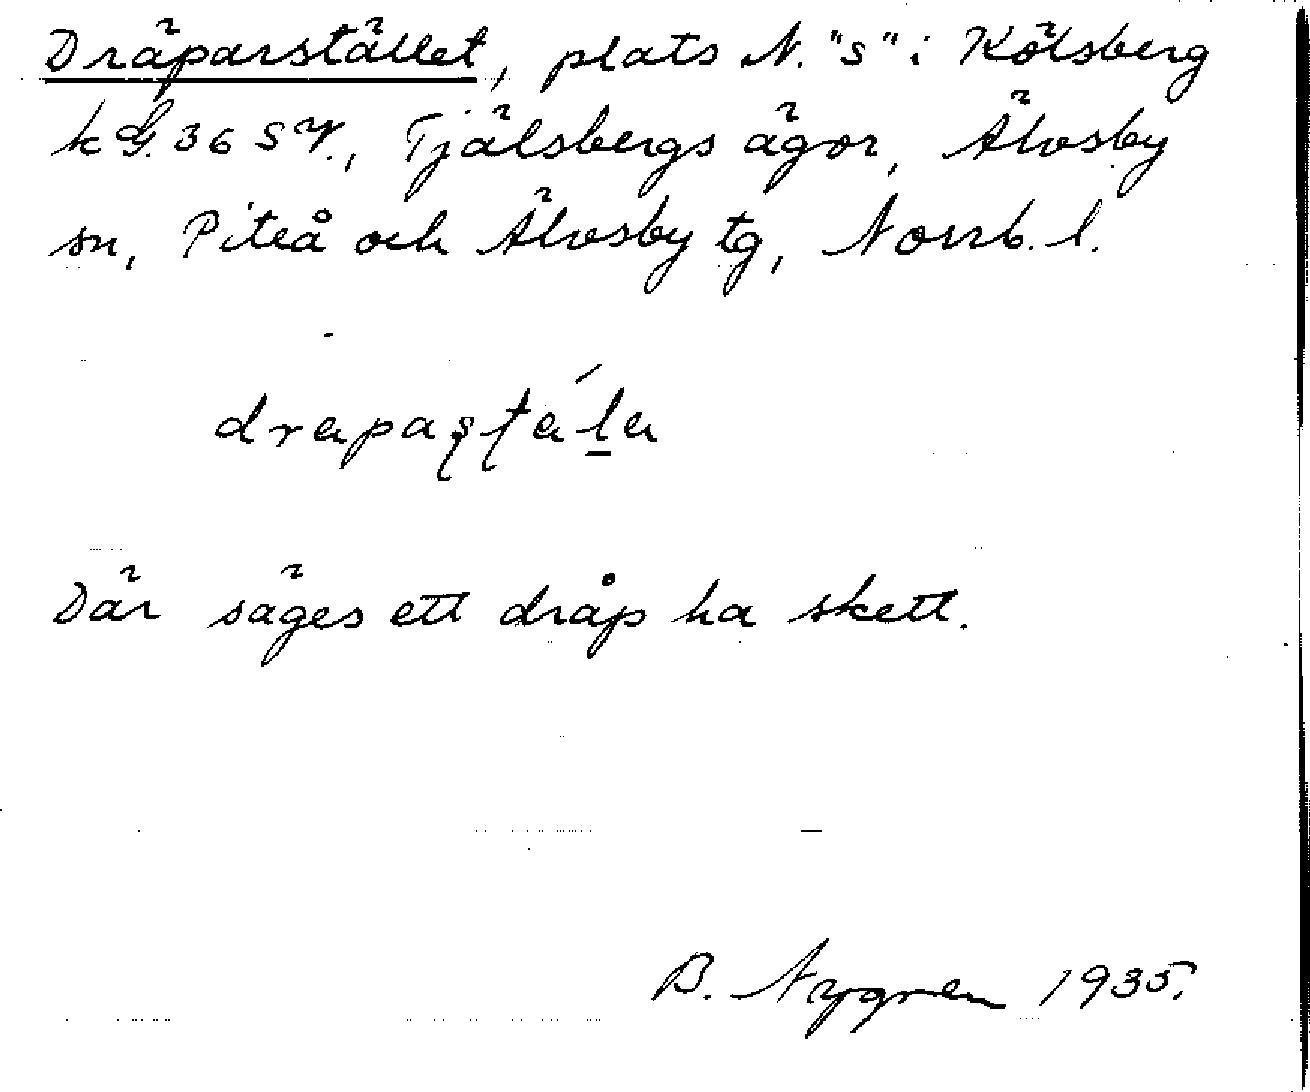 Dräparstället, plats N. "s" i Kölsberg
k G. 36 SV., Tjälsbergs ägor, Älvsby
sn, Piteå och Älvsby tg, Norrb. l.
Där säges ett dråp ha skett.
B. Nygren 1935.